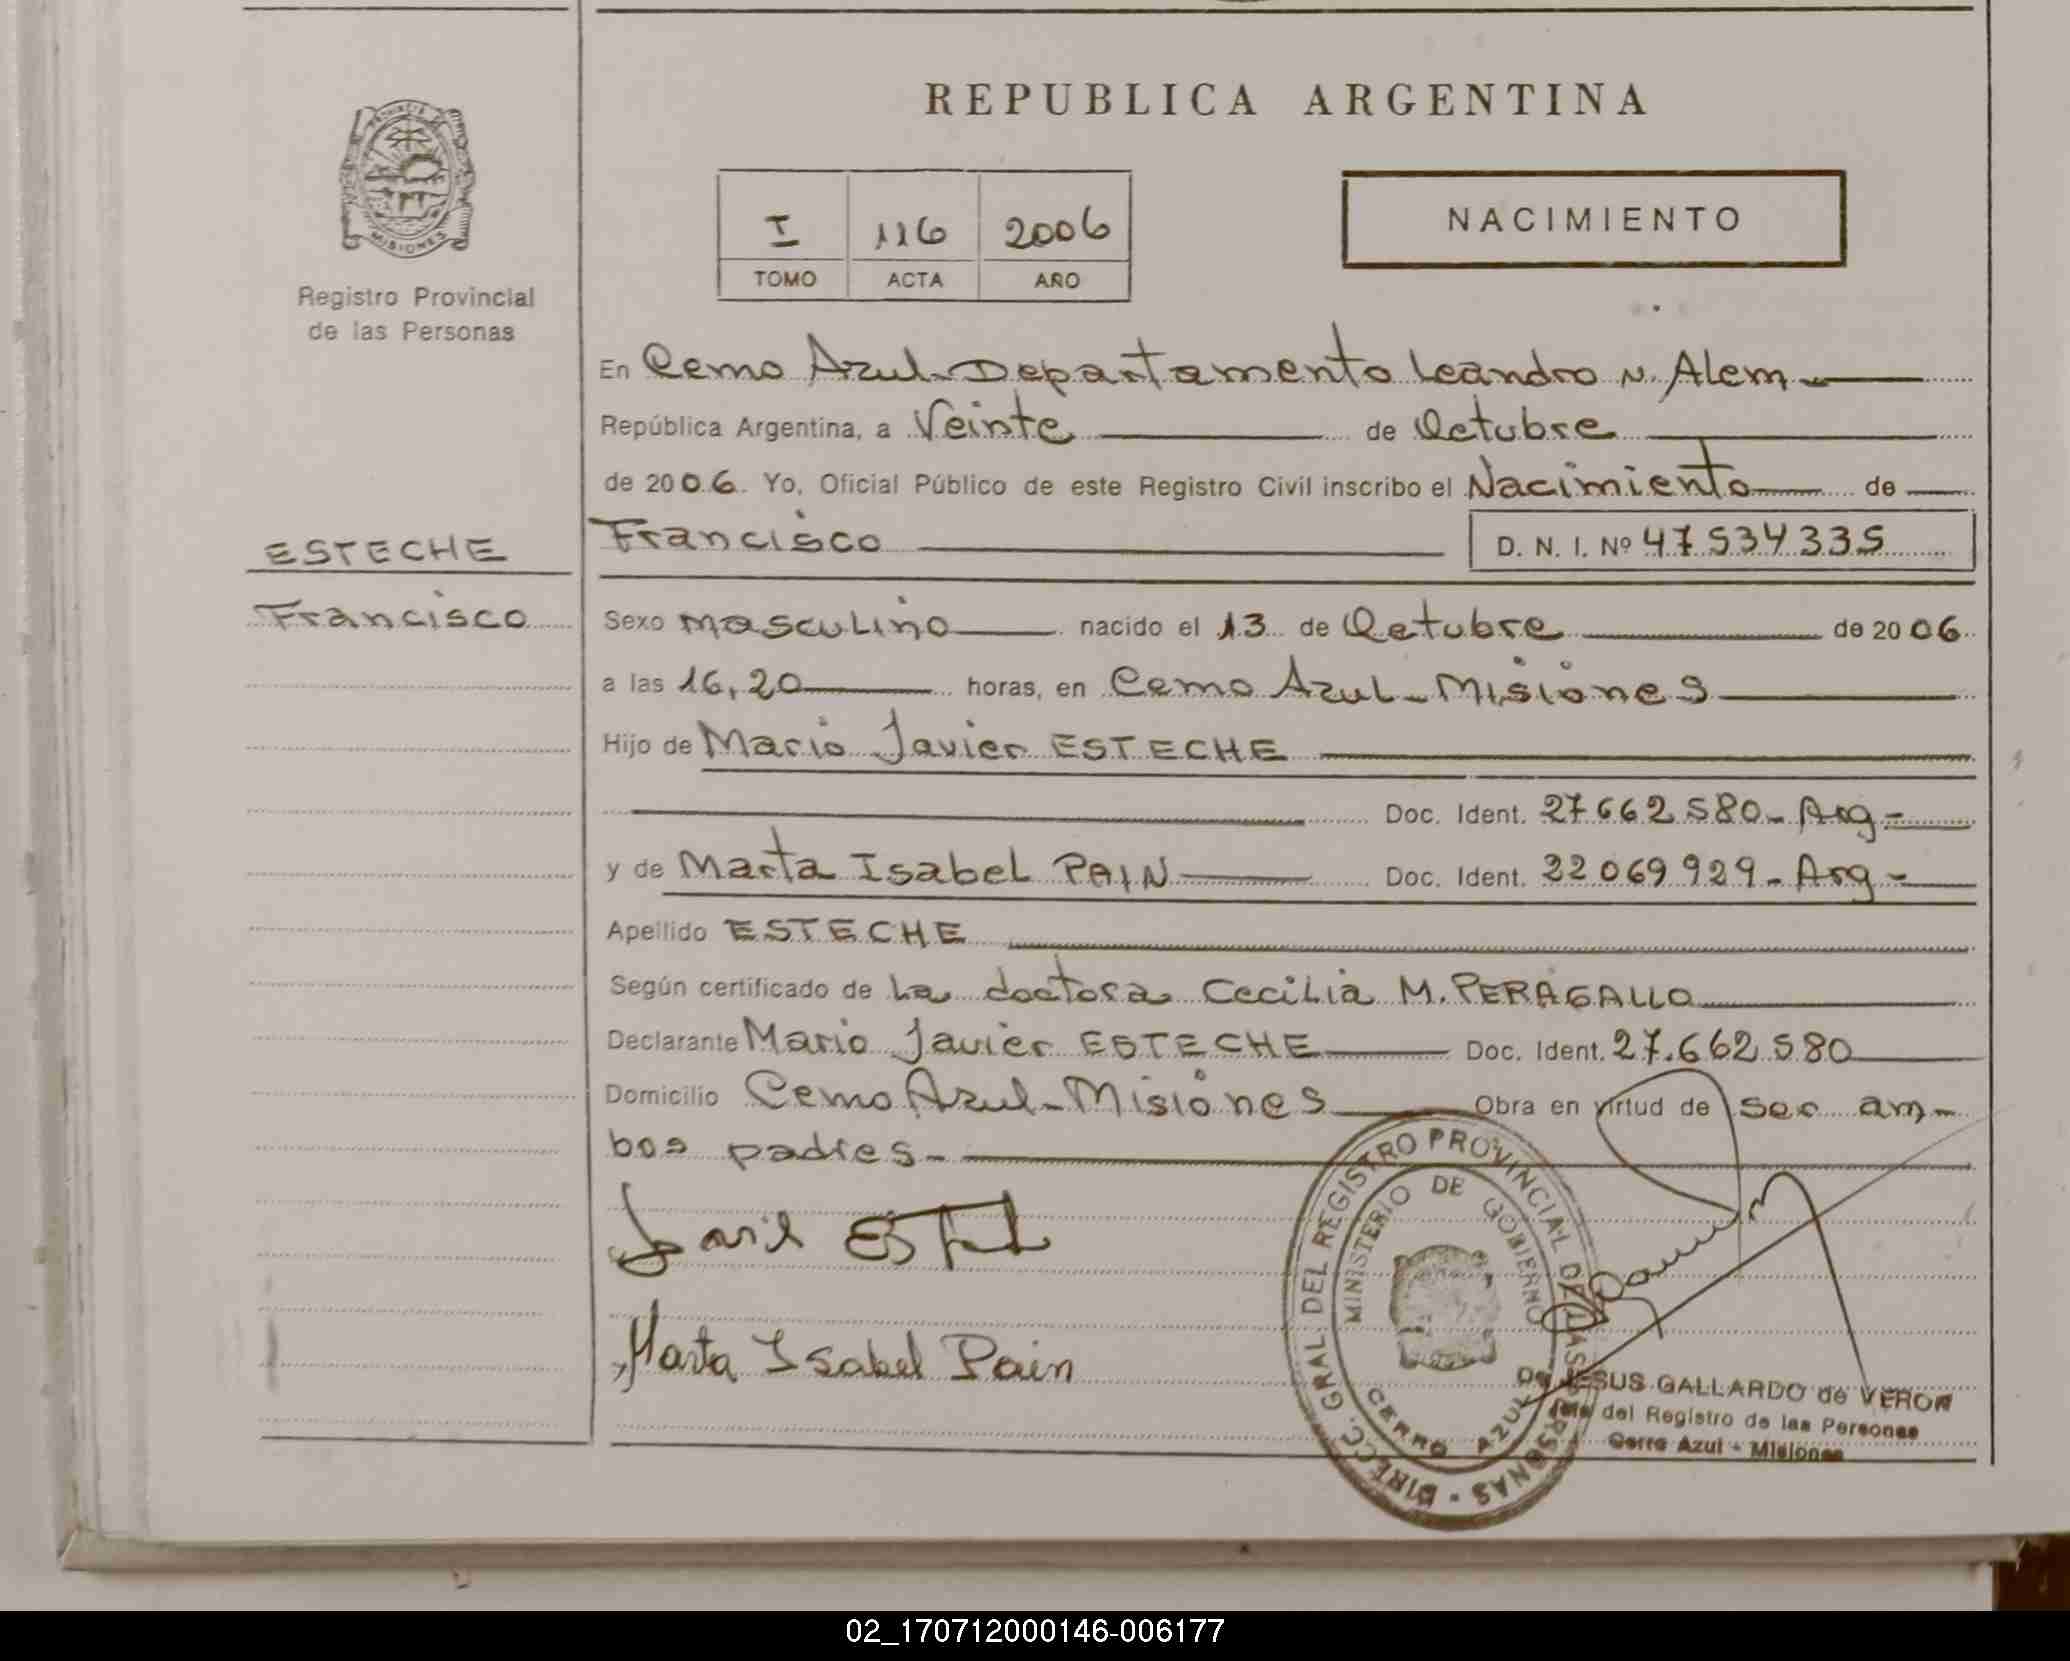 REPUBLICA ARGENTINA
PROVINCIA DE MISIONES
Registro Provincial
de las Personas
I 116 2006
TOMO ACTA AÑO
NACIMIENTO
En Cerro Azul - Departamento Leandro N. Alem
República Argentina, a Veinte de Octubre
de 2006. Yo, Oficial Público de este Registro Civil inscribo el Nacimiento de
ESTECHE
Francisco D. N. I. Nº 47534335
Francisco
Sexo masculino nacido el 13 de Octubre de 2006
a las 16,20 horas, en Cerro Azul - Misiones
Hijo de Mario Javier ESTECHE
Doc. Ident. 27662580 - Arg -
y de Marta Isabel PAIN Doc. Ident. 22069929 - Arg -
Apellido ESTECHE
Según certificado de La doctora Cecilia M. PERAGALLO
Declarante Mario Javier ESTECHE Doc. Ident. 27.662.580
Domicilio Cerro Azul - Misiones Obra en virtud de ser am-
bos padres -
Marta Isabel Pain
DIRECC. GRAL DEL REGISTRO PROVINCIAL DE LAS PERSONAS
MINISTERIO DE GOBIERNO
CERRO AZUL
JESUS GALLARDO de VERON
del Registro de las Personas
Cerro Azul - Misiones
02_170712000146-006177